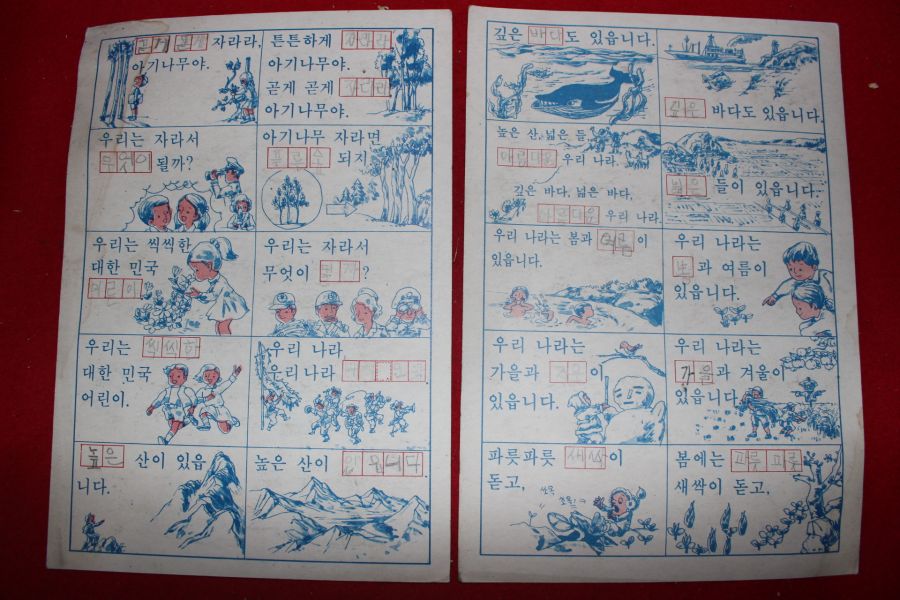 곧게 곧게 자라라,
아기나무야.
튼튼하게 자라라
아기나무야.
곧게 곧게 자라라
아기나무야.
우리는 자라서
무엇이 될까?
아기나무 자라면
되지
우리는 씩씩한
대한 민국
어린이
우리는 자라서
무엇이 될까?
우리는 씩씩한
대한 민국
어린이.
우리 나라
우리 나라
높은 산이 있읍
니다.
높은 산이 있읍니다
깊은 바다도 있읍니다.
깊은 바다도 있읍니다.
높은 산, 넓은 들
아름다운 우리 나라,
깊은 바다, 넓은 바다,
아름다운 우리 나라,
넓은 들이 있읍니다.
우리 나라는 봄과 여름이
있읍니다.
우리 나라는
봄과 여름이
있읍니다.
우리 나라는
가을과 겨울이
있읍니다.
우리 나라는
가을과 겨울이
있읍니다.
파릇파릇 새싹이
돋고,
봄에는 파릇파릇
새싹이 돋고,